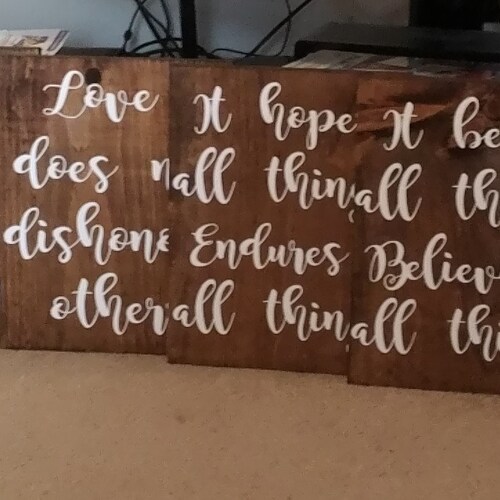 Love
does n
dishono
others
It hope
all thin
Endures
all thin
It be
all th
Believ
all thi